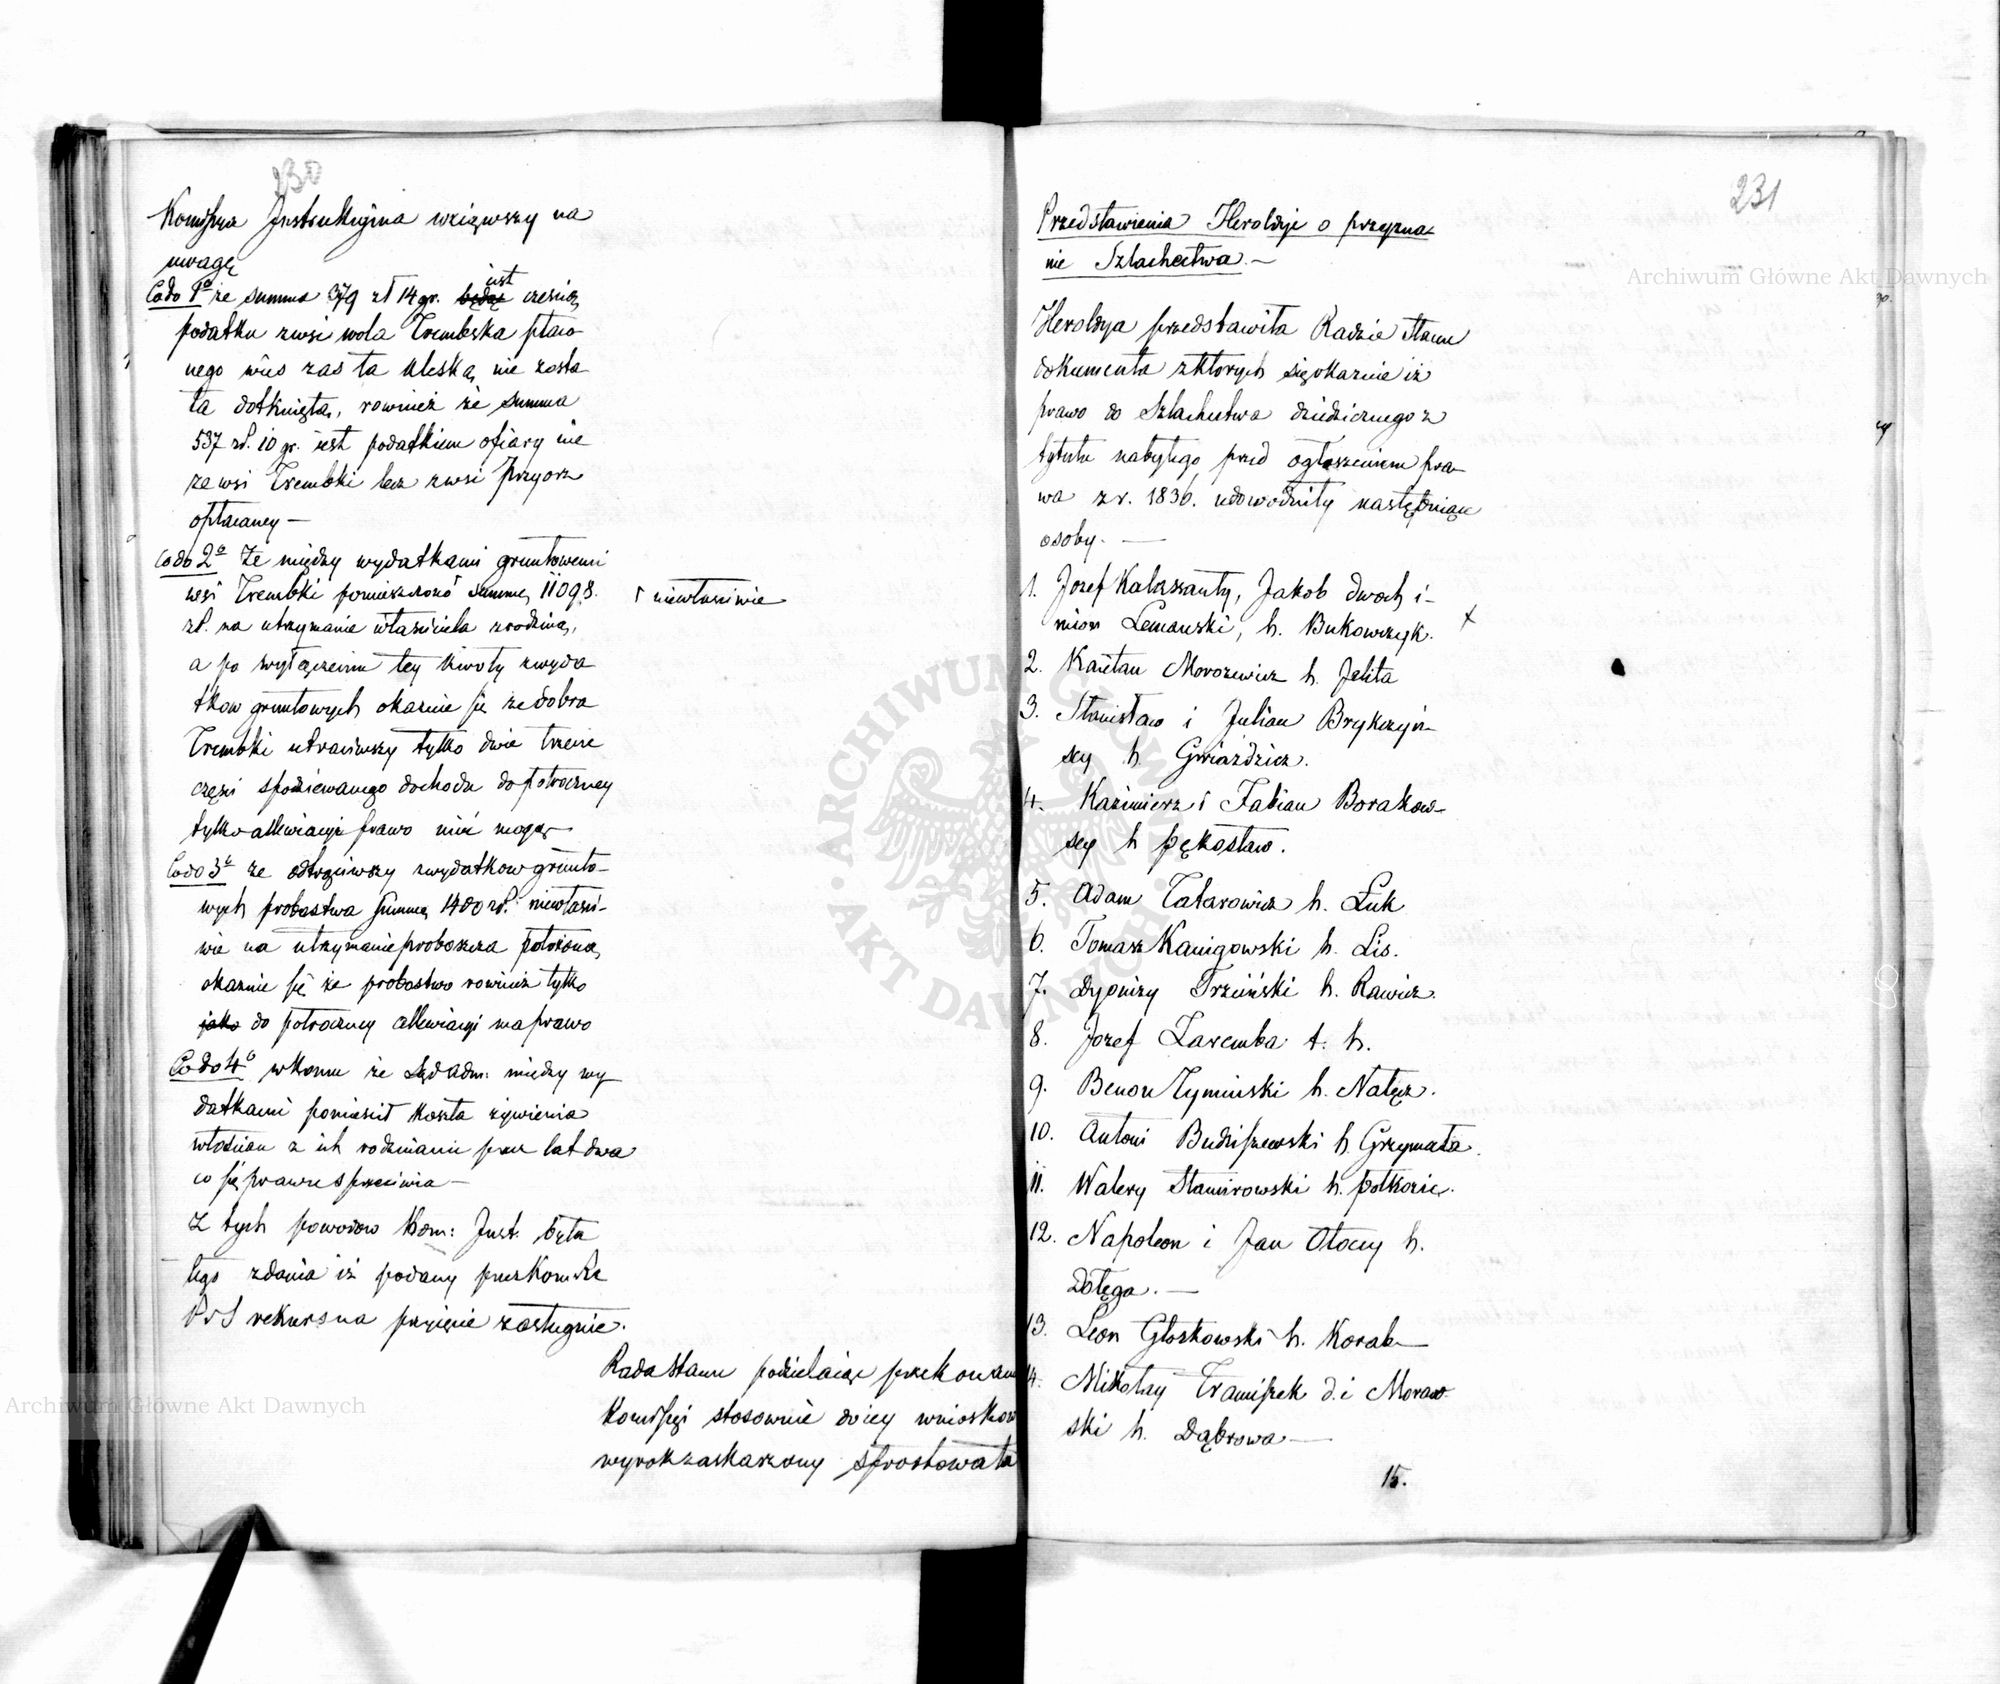 230
Komissya Instrukcyjna wziąwszy na
uwagę
Co do 1º że summa 379 zł 14 gr. będąc jest częścią
podatku z wsi wola Trembska płaco
nego wieś zaś ta klęską nie zosta
ła dotkniętą, rownież że summa
537 zł. 10 gr. jest podatkiem ofiary nie
ze wsi Trembki lecz z wsi Przyorz
opłacaney —
Co do 2º Że między wydatkami gruntowemi
wsi Trembki pomieszczono summę 11098.
zł. na utrzymanie właściciela z rodziną,
┌ niewłaściwie
a po wyłączeniu tey kwoty z wyda
tkow gruntowych okazuie się że dobra
Trembki utraciwszy tylko dwie trzecie
części spodziewanego dochodu do połroczney
tylko allewiacyi prawo mieć mogą
Co do 3º że odtrąciwszy z wydatkow grunto-
wych probostwa summę 1400 zł. niewłaści-
wie na utrzymanie proboszcza położoną,
okazuie się że probostwo rownież tylko
jako do połroczney allewiacyi ma prawo
Co do 4º w koncu że Sąd Adm: między wy
datkami pomieścił koszta żywienia
włościan z ich rodzinami przez lat dwa
co się prawu sprzeciwia —
Z tych powodow Kom: Inst. była
tego zdania iż podany przez Kom. Rz
P i S rekurs na przyięcie zasługuie.
Rada Stanu podzielaiąc przekonanie
Komissyi stosownie do iey wnioskow
wyrok zaskarżony sprostowała
231
Przedstawienia Heroldyi o przyzna
nie Szlachectwa. —
Heroldya przedstawiła Radzie Stanu
dokumenta z ktorych się okazuie iż
prawo do Szlachectwa dziedzicznego z
tytułu nabytego przed ogłoszeniem pra-
wa z r. 1836. udowodniły następuiące
osoby. —
1. Jozef Kalazanty, Jakob dwoch i-
mion Lemanski, h. Bukowczyk. x
2. Kaietan Morozewicz h. Jelita
3. Stanisław i Julian Brykczyń-
scy h. Gwiaździcz.
4. Kazimierz i Fabian Borakow-
scy h Pękosław.
5. Adam Tatarowicz h. Łuk
6. Tomasz Kanigowski h. Lis.
7. Dyonizy Trzciński h. Rawicz.
8. Jozef Zaremba t. h.
9. Benon Zymiński h. Nałęcz.
10. Antoni Budziszewski h. Grzymała.
11. Walery Stamirowski h. Połkozic.
12. Napoleon i Jan Otoccy h.
Dołęga. —
13. Leon Głoskowski h. Korab—
14. Mikołay Franciszek d. i Moraw
ski h. Dąbrowa —
15.
Archiwum Główne Akt Dawnych
Archiwum Główne Akt Dawnych
ARCHIWUM GŁÓWNE · AKT DAWNYCH ·